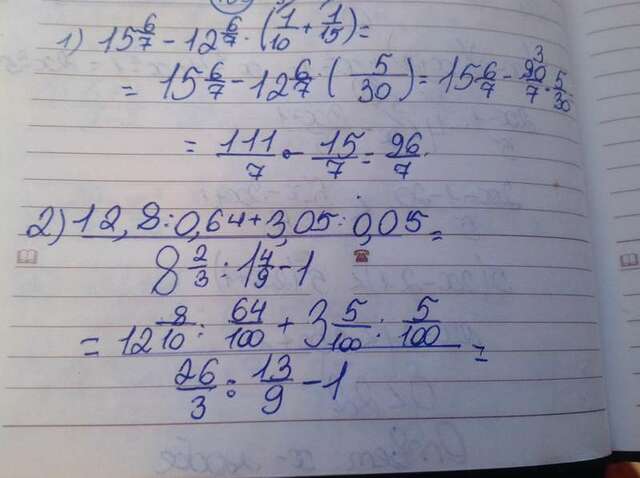 1) 15 6/7 - 12 6/7 · (1/10 + 1/15) =
= 15 6/7 - 12 6/7 · (5/30) = 15 6/7 - 90/7 · 5/30
3
= 111/7 - 15/7 = 96/7
2) 12,8 : 0,64 + 3,05 : 0,05 =
8 2/3 : 1 4/9 - 1
= 12 8/10 : 64/100 + 3 5/100 : 5/100 =
26/3 : 13/9 - 1